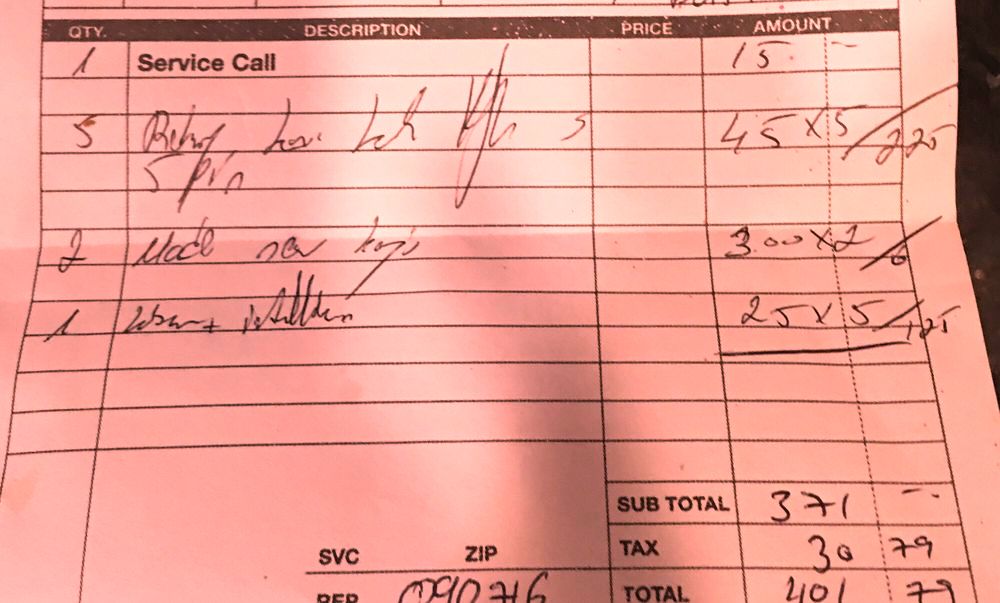 QTY. DESCRIPTION PRICE AMOUNT
1 Service Call 15 -
5 5 45 x 5 / 225
5 pin
2 Made new keys 3 00 x 2 / 6
1 Labor + installation 25 x 5 / 125
SUB TOTAL 371 -
SVC ZIP TAX 30 79
REP 090716 TOTAL 401 79